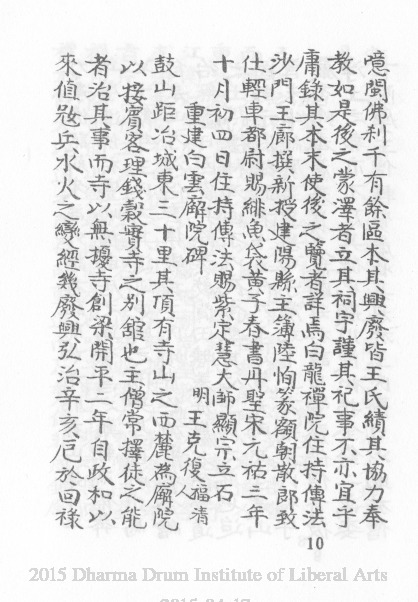 噫閩佛利千有餘區本其興廢皆王氏績其協力奉
教如是後之蒙澤者立其祠宇謹其祀事不亦宜乎
庸錄其本末使後之覽者詳焉白龍禪院住持傳法
沙門王廊撰新授建陽縣主簿陸恂篆額朝散郎致
仕輕車都尉賜緋魚袋黃子春書丹聖宋元祐三年
十月初四日住持傳法賜紫定慧大師顯宗立石
重建白雲廨院碑
明王克復福清人
鼓山距治城東三十里其頂有寺山之西麓為廨院
以接賓客理錢穀實寺之別舘也主僧常擇徒之能
者治其事而寺以無擾寺創梁開平二年自政和以
來值燬兵水火之變經幾廢興弘治辛亥厄於回祿
10
2015 Dharma Drum Institute of Liberal Arts